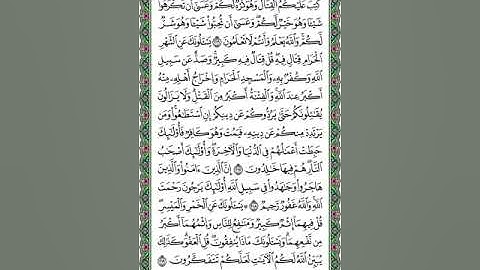 كُتِبَ عَلَيْكُمُ الْقِتَالُ وَهُوَ كُرْهٌ لَّكُمْ وَعَسَىٰ أَن تَكْرَهُوا
شَيْئًا وَهُوَ خَيْرٌ لَّكُمْ وَعَسَىٰ أَن تُحِبُّوا شَيْئًا وَهُوَ شَرٌّ
لَّكُمْ وَاللَّهُ يَعْلَمُ وَأَنتُمْ لَا تَعْلَمُونَ ۝ يَسْـَٔلُونَكَ عَنِ الشَّهْرِ
الْحَرَامِ قِتَالٍ فِيهِ قُلْ قِتَالٌ فِيهِ كَبِيرٌ وَصَدٌّ عَن سَبِيلِ
اللَّهِ وَكُفْرٌ بِهِ وَالْمَسْجِدِ الْحَرَامِ وَإِخْرَاجُ أَهْلِهِ مِنْهُ
أَكْبَرُ عِندَ اللَّهِ وَالْفِتْنَةُ أَكْبَرُ مِنَ الْقَتْلِ وَلَا يَزَالُونَ
يُقَاتِلُونَكُمْ حَتَّىٰ يَرُدُّوكُمْ عَن دِينِكُمْ إِنِ اسْتَطَاعُوا وَمَن
يَرْتَدِدْ مِنكُمْ عَن دِينِهِ فَيَمُتْ وَهُوَ كَافِرٌ فَأُولَٰئِكَ
حَبِطَتْ أَعْمَالُهُمْ فِي الدُّنْيَا وَالْآخِرَةِ وَأُولَٰئِكَ أَصْحَابُ
النَّارِ هُمْ فِيهَا خَالِدُونَ ۝ إِنَّ الَّذِينَ آمَنُوا وَالَّذِينَ
هَاجَرُوا وَجَاهَدُوا فِي سَبِيلِ اللَّهِ أُولَٰئِكَ يَرْجُونَ رَحْمَتَ
اللَّهِ وَاللَّهُ غَفُورٌ رَّحِيمٌ ۝ يَسْـَٔلُونَكَ عَنِ الْخَمْرِ وَالْمَيْسِرِ
قُلْ فِيهِمَا إِثْمٌ كَبِيرٌ وَمَنَافِعُ لِلنَّاسِ وَإِثْمُهُمَا أَكْبَرُ
مِن نَّفْعِهِمَا وَيَسْـَٔلُونَكَ مَاذَا يُنفِقُونَ قُلِ الْعَفْوَ كَذَٰلِكَ
يُبَيِّنُ اللَّهُ لَكُمُ الْآيَاتِ لَعَلَّكُمْ تَتَفَكَّرُونَ ۝